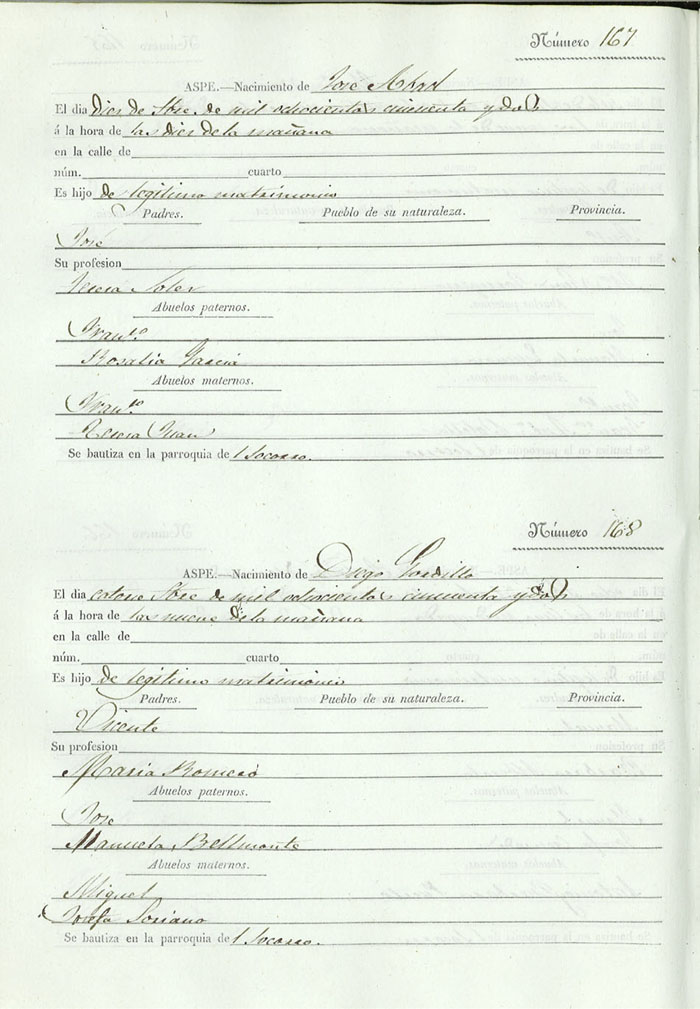 Número 167
ASPE.—Nacimiento de José Abad
El dia Dies de Sbre. de mil ochocientos cincuenta y dos
á la hora de las dies de la mañana
en la calle de
núm. cuarto
Es hijo de legitimo matrimonio
Padres. Pueblo de su naturaleza. Provincia.
José
Su profesion
Teresa Soler
Abuelos paternos.
Franco.
Rosalia Garcia
Abuelos maternos.
Franco.
Teresa Juan
Se bautiza en la parroquia de l Socorro.
Número 168
ASPE.—Nacimiento de Diego Gordillo
El dia catorse Sbre de mil ochocientos cincuenta y dos
á la hora de las nueve de la mañana
en la calle de
núm. cuarto
Es hijo de legitimo matrimonio
Padres. Pueblo de su naturaleza. Provincia.
Vicente
Su profesion
Maria Romero
Abuelos paternos.
José
Manuela Bellmonte
Abuelos maternos.
Miguel
Josefa Soriano
Se bautiza en la parroquia de l Socorro.